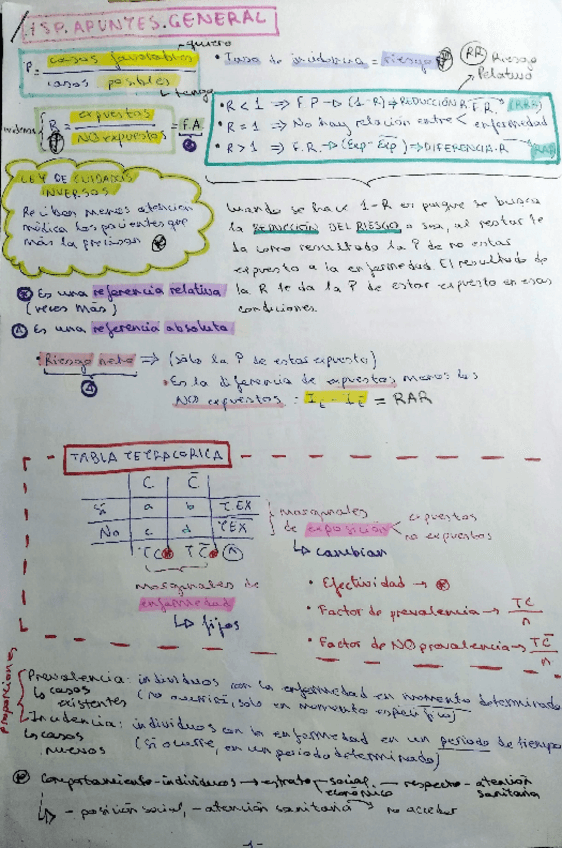 ISP. APUNTES. GENERAL
quiero
P = casos favorables / casos posibles
tengo
• Tasa de incidencia = riesgo
RR Riesgo Relativo
R = expuestos / NO expuestos = F.A
• R < 1 ⇒ F.P → (1-R) ⇒ REDUCCIÓN R F.R. (RRR)
• R = 1 ⇒ No hay relación entre < enfermedad
• R > 1 ⇒ F.R. → (Exp-Exp̅) ⇒ DIFERENCIA.R (RAR)
LEY DE CUIDADOS INVERSOS
Reciben menos atención
médica los pacientes que
más la precisan
Cuando se hace 1-R es porque se busca
la REDUCCIÓN DEL RIESGO, o sea, al restar te
da como resultado la P de no estar
expuesto a la enfermedad. El resultado de
la R te da la P de estar expuesto en esas
condiciones.
Es una referencia relativa
(veces más)
Es una referencia absoluta
• Riesgo neto ⇒ (sólo la P de estar expuesto)
• Es la diferencia de expuestos menos los
NO expuestos: = RAR
TABLA TETRACORICA
C C̅
Sí a b T.EX
No c d T̅EX
TC TC̅ n
marginales de exposición < expuestos
no expuestos
↳ cambian
marginales de
enfermedad
↳ fijos
• Efectividad →
• Factor de prevalencia → TC/n
• Factor de NO prevalencia → TC̅/n
Proporciones
Prevalencia: individuos con la enfermedad en momento determinado
↳ casos existentes (no ocurrirá, solo en momento específico)
Incidencia: individuos con la enfermedad en un periodo de tiempo
↳ casos nuevos (sí ocurre, en un periodo determinado)
Comportamiento-individuos → estrato-social, económico - respecto-atención sanitaria
↳ - posición social, - atención sanitaria → no acceder
-1-